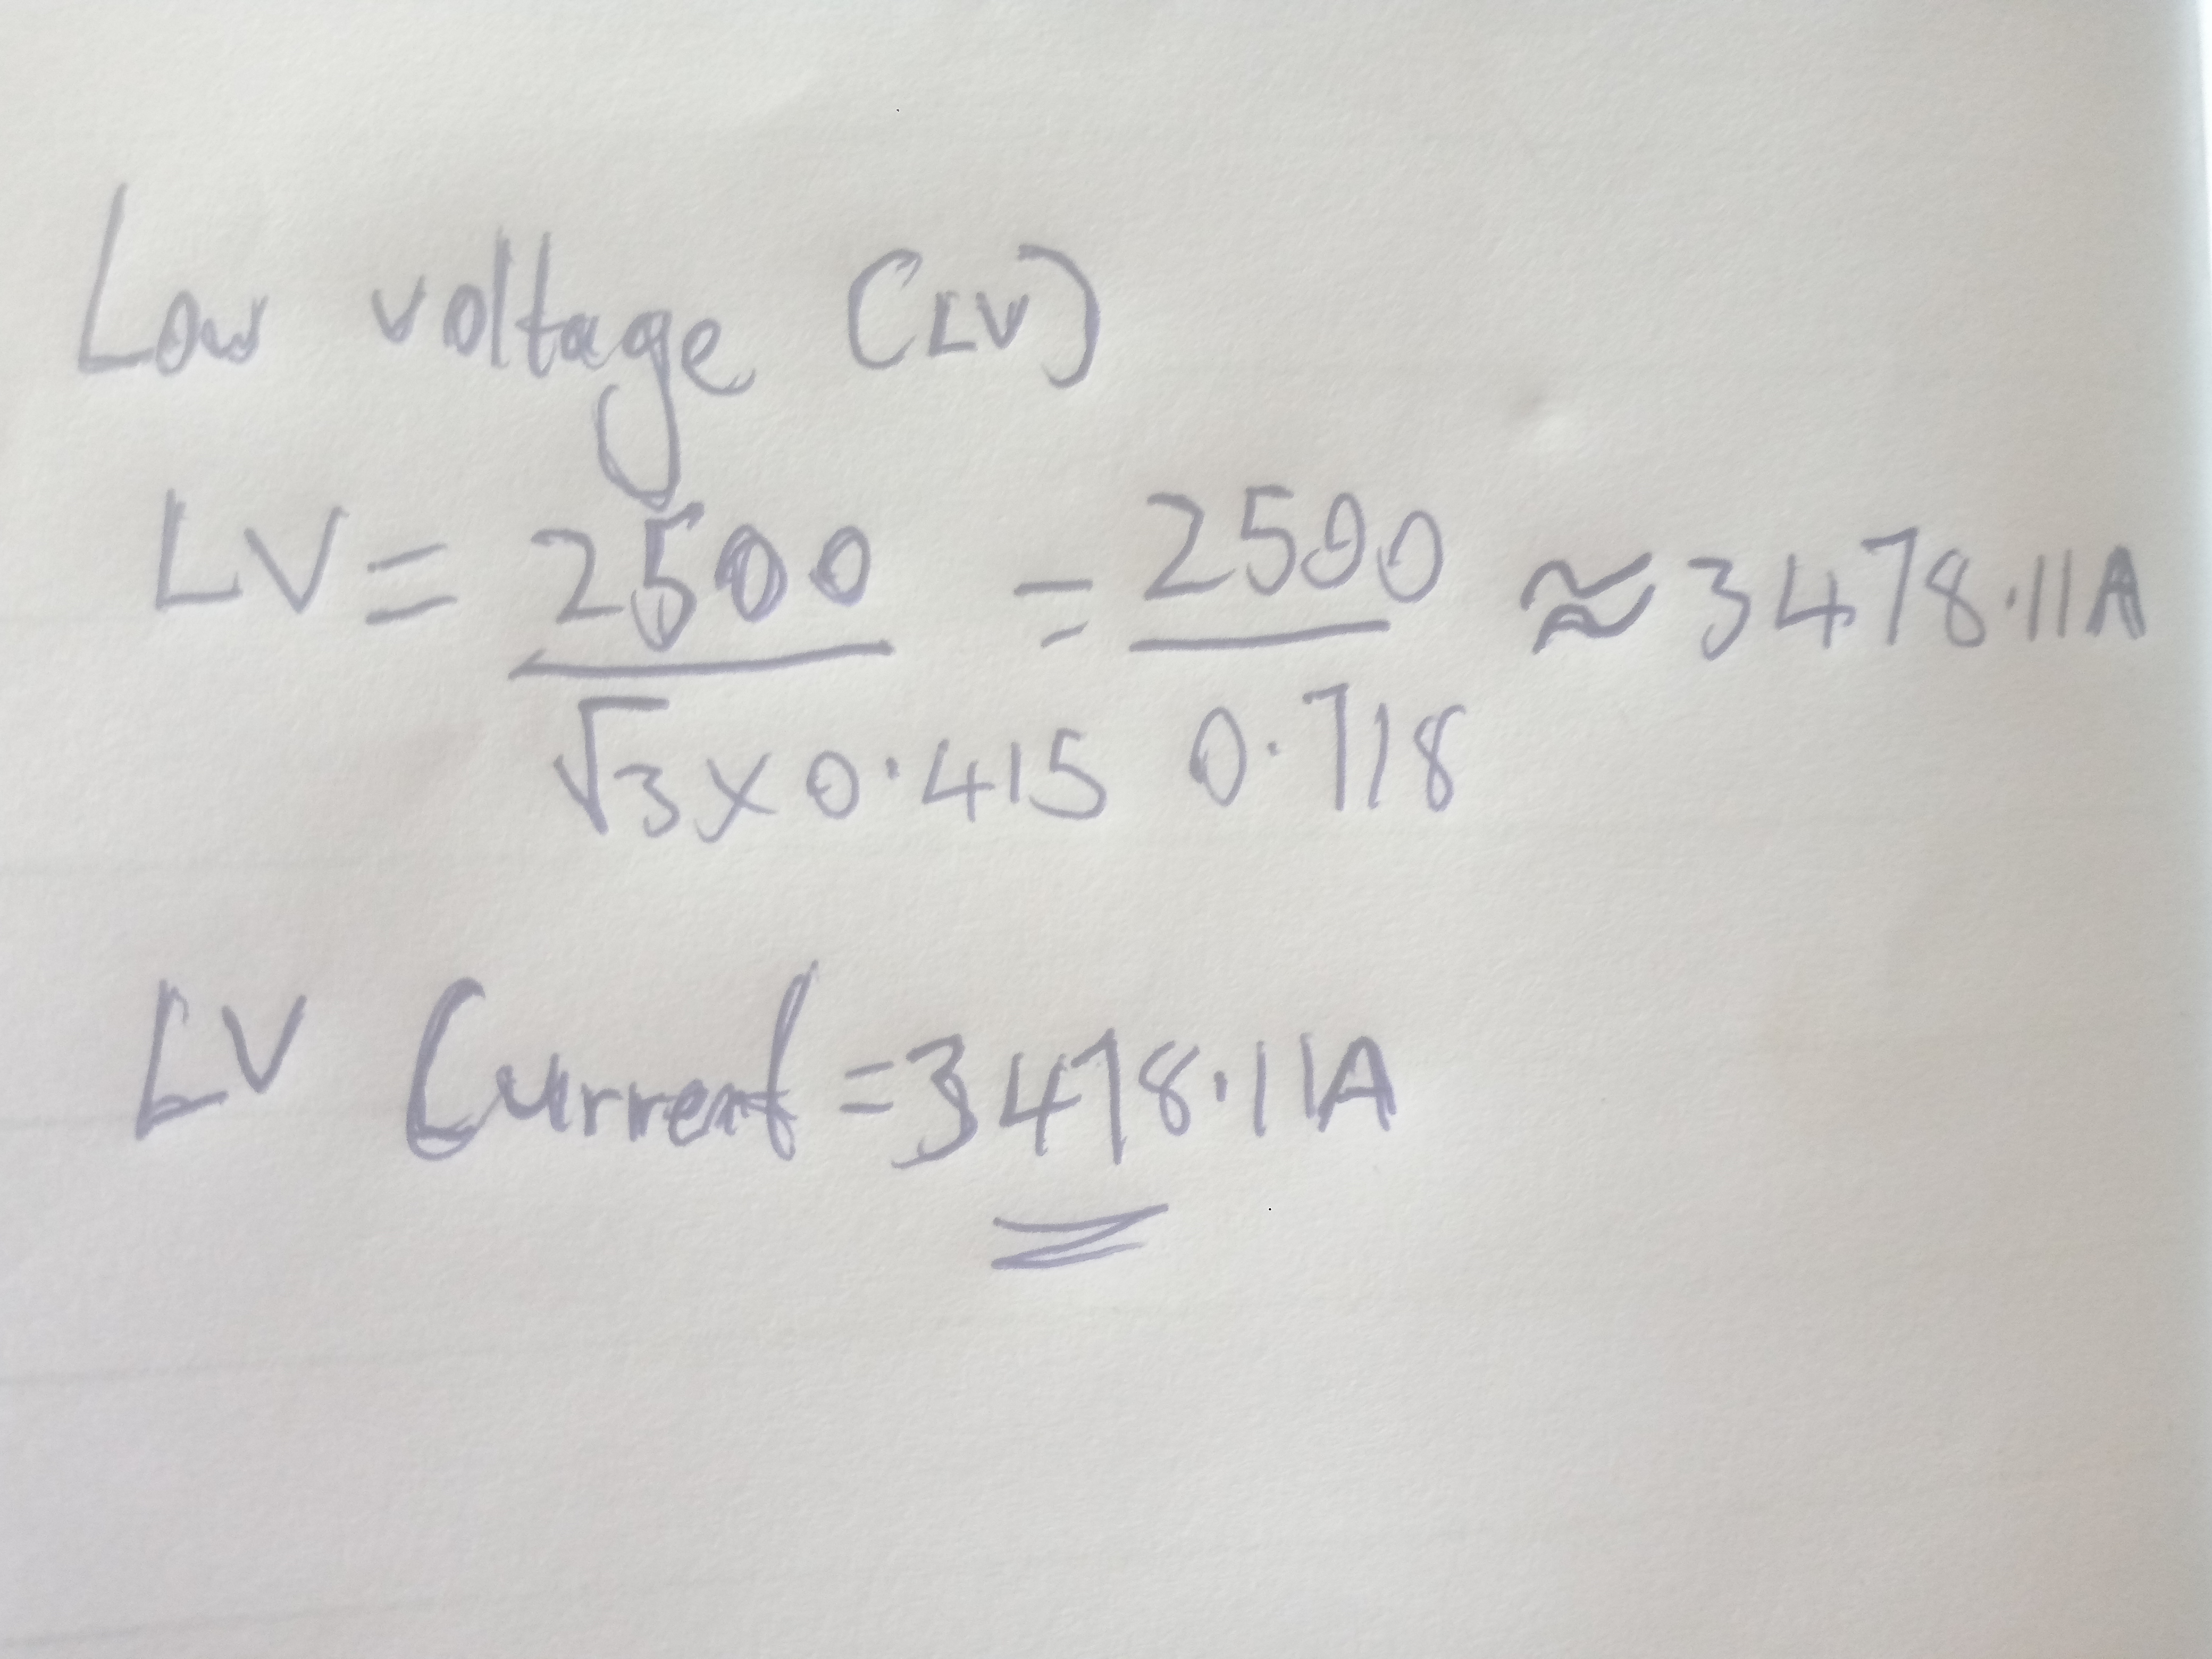 Low voltage (LV)
LV = 2500 / √3 x 0.415 = 2500 / 0.718 ≈ 3478.11A
LV Current = 3478.11A